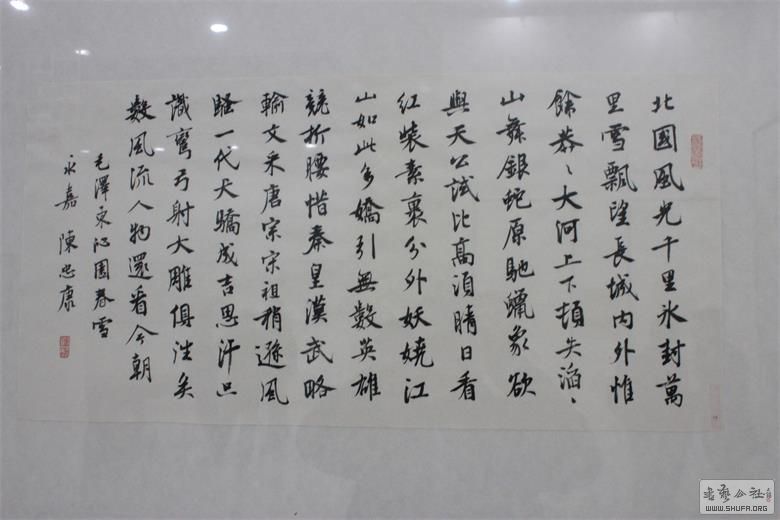 北國風光千里氷封萬
里雪飄望長城内外惟
餘莽〻大河上下頓失滔〻
山舞銀蛇原馳蠟象欲
與天公試比高須晴日看
紅裝素裹分外妖嬈江
山如此多嬌引無數英雄
競折腰惜秦皇漢武略
輸文采唐宗宋祖稍遜風
騷一代天驕成吉思汗只
識彎弓射大雕俱往矣
數風流人物還看今朝
毛澤東沁園春雪
永嘉 陳忠康
書藝公社
WWW.SHUFA.ORG